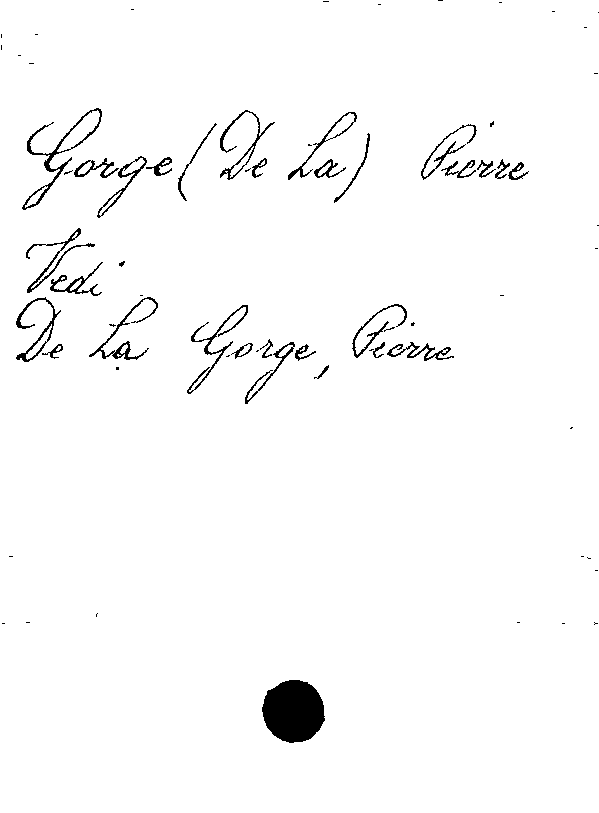 Gorge (De La) Pierre
Vedi
De La Gorge, Pierre